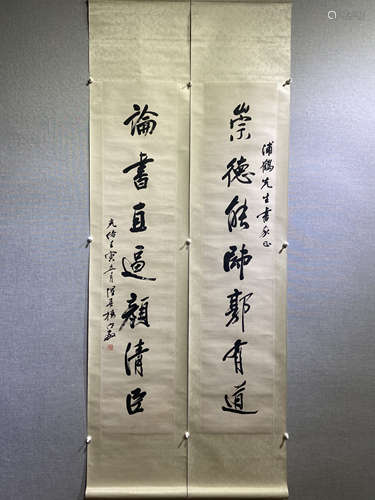 浦鶴先生書家正
崇德能師郭有道
論書直逼顏清臣
光緒壬寅五月